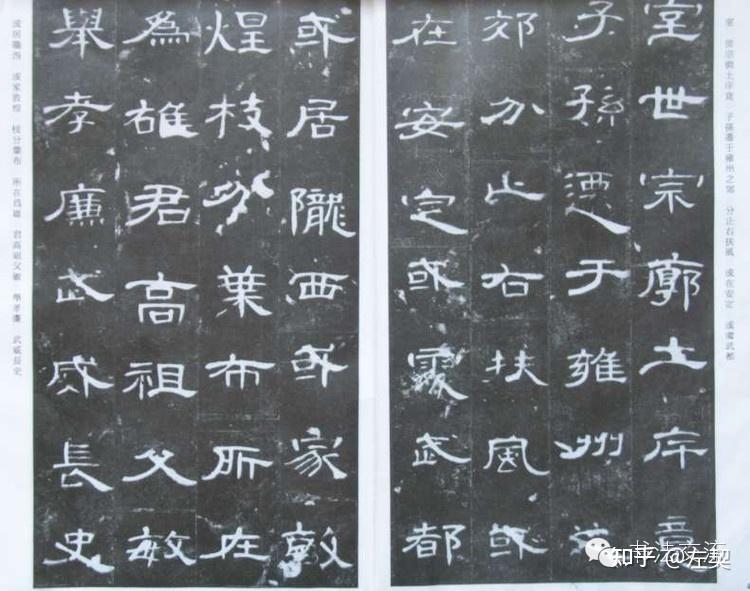 室 世宗廓土斥竟 子孫遷于雍州之郊 分止右扶風 或在安定 或處武都
室世宗廓土斥竟
子孫遷于雍州之
郊分止右扶風或
在安定或處武都
或居隴西或家敦
煌枝分葉布所在
為雄君高祖父敏
舉孝廉武威長史
或居隴西 或家敦煌 枝分葉布 所在爲雄 君高祖父敏 舉孝廉 武威長史
知乎 @左契